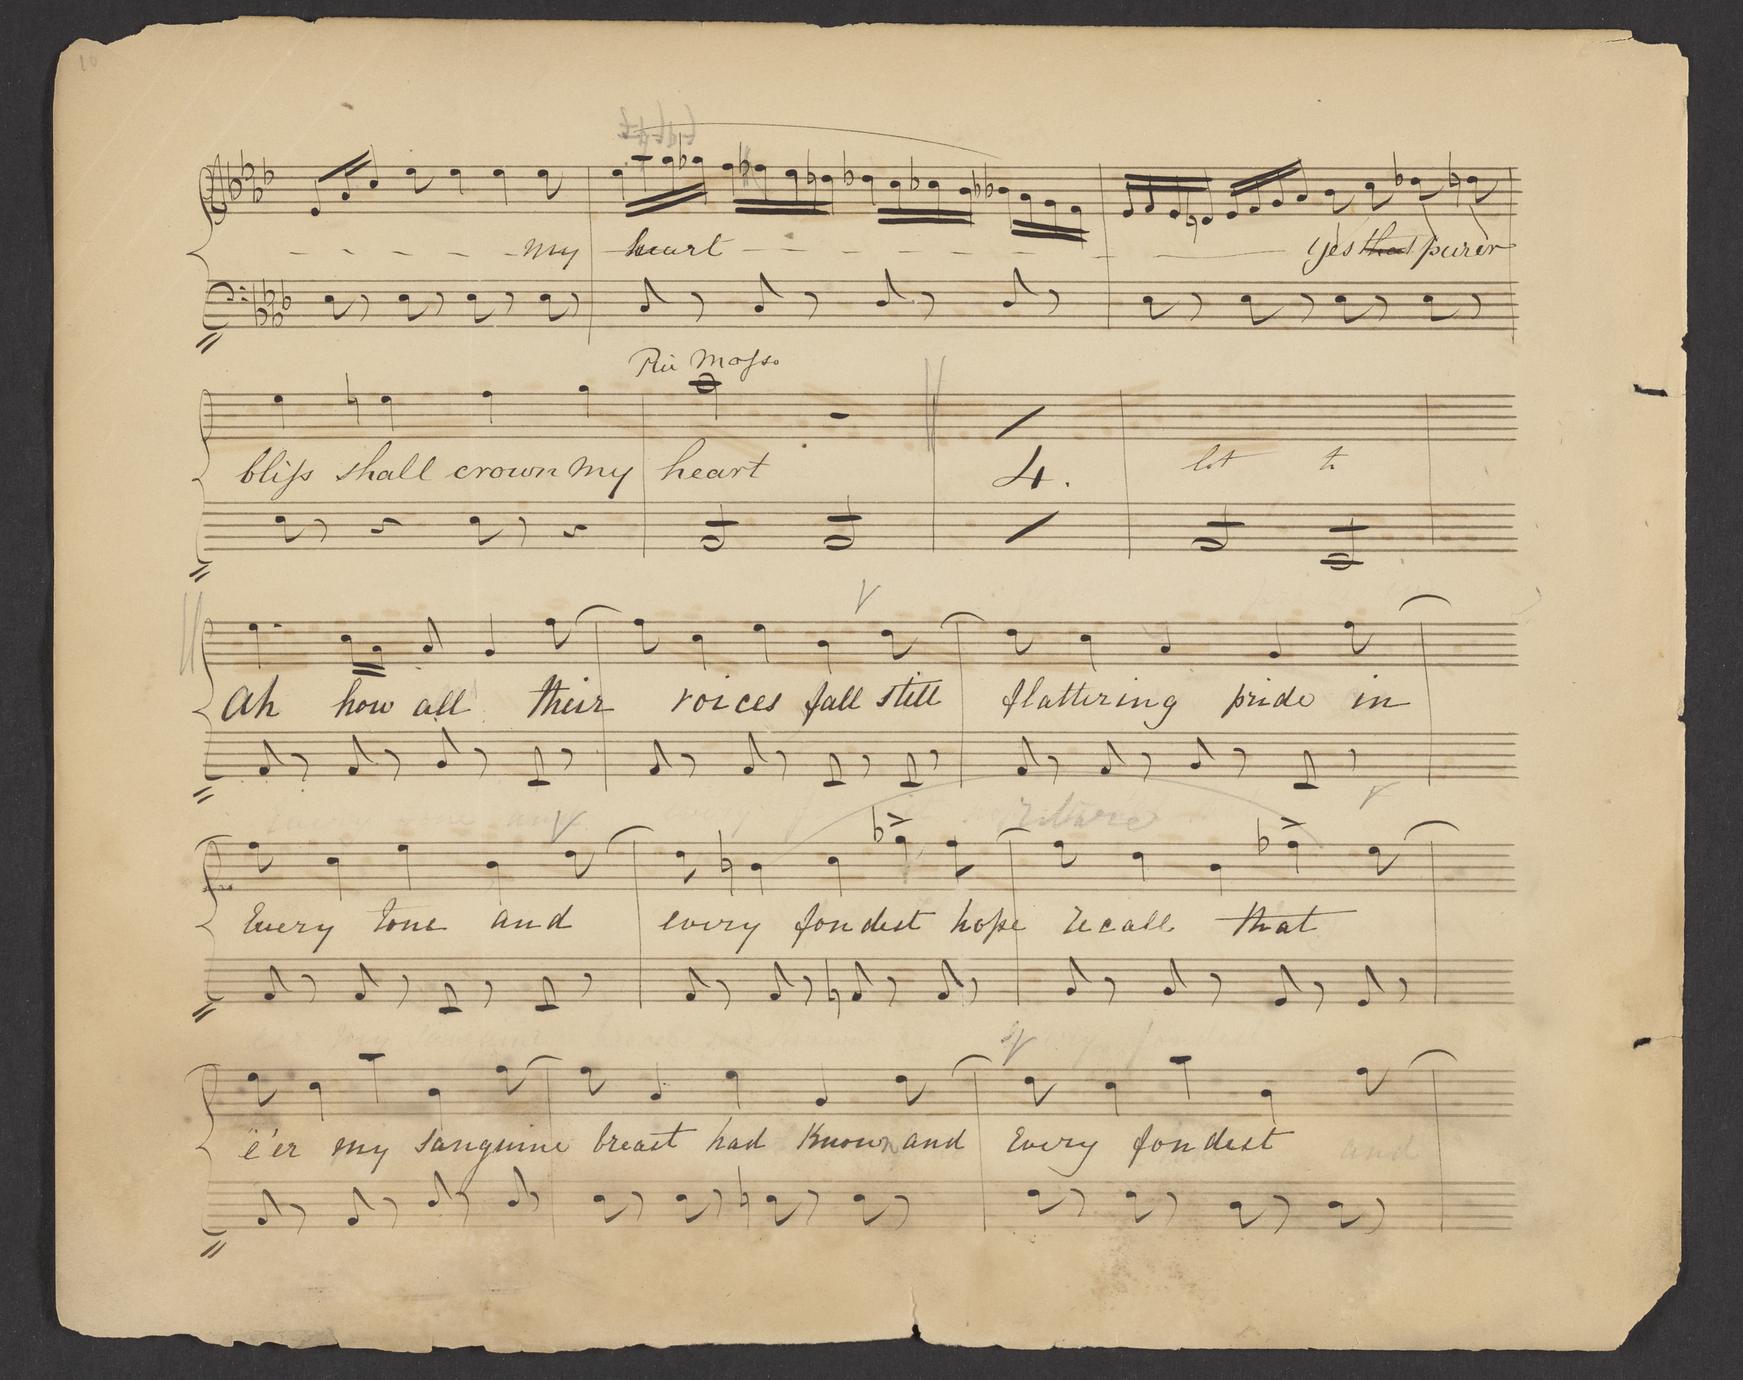 10
my heart yes that purer
Più Mosso
bliss shall crown my heart 4. lot
Ah how all their voices fall still flattering pride in
Every tone and every fondest hope recall that
e'er my sanguine breast had known and Every fondest and